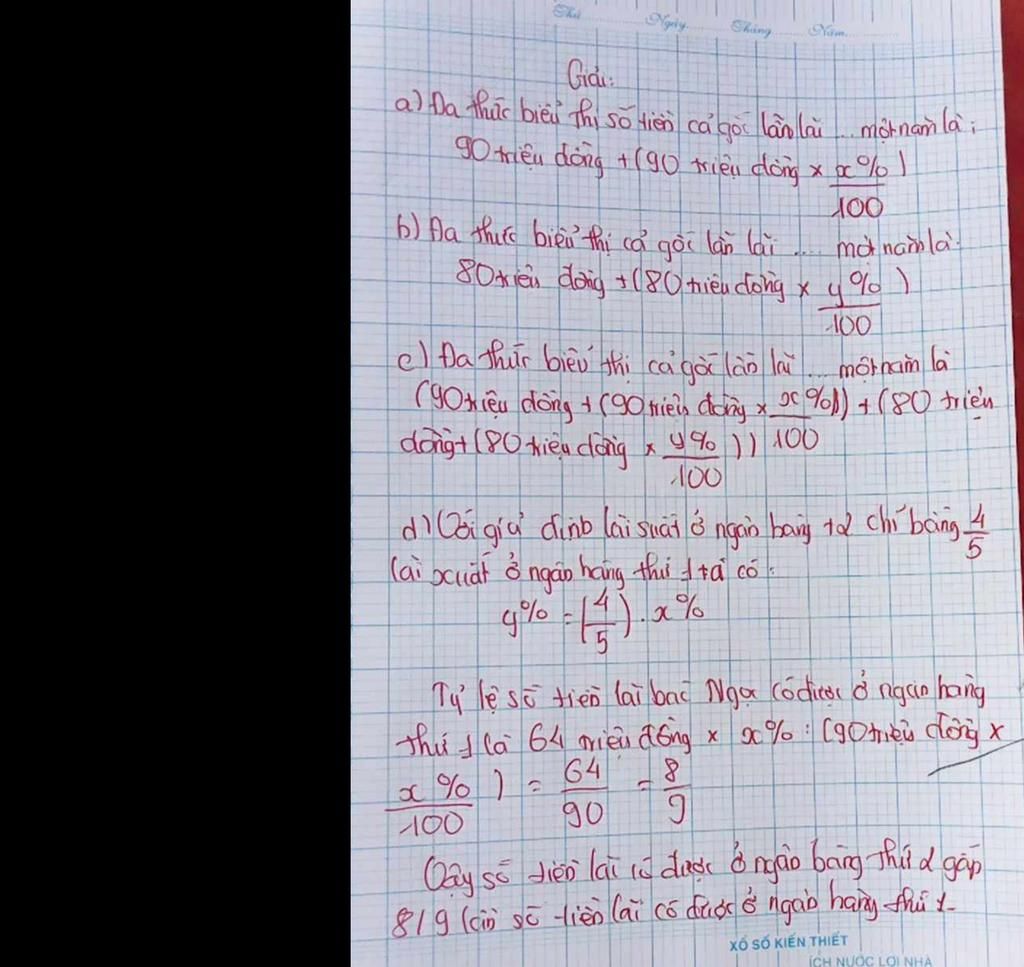 Thứ Ngày Tháng Năm
Giải:
a) Đa thức biểu thị số tiền cả gốc lẫn lãi ... một năm là:
90 triệu đồng + (90 triệu đồng × x%)
100
b) Đa thức biểu thị cả gốc lẫn lãi .... một năm là:
80 triệu đồng + (80 triệu đồng × y% )
100
c) Đa thức biểu thị cả gốc lẫn lãi ... một năm là
(90 triệu đồng + (90 triệu đồng × x%)) + (80 triệu
100
đồng + (80 triệu đồng × y% ))
100
d) Với giả định lãi suất ở ngân hàng t2 chỉ bằng 4/5
lãi xuất ở ngân hàng thứ 1 ta có:
y% = (4/5) . x%
Tỷ lệ số tiền lãi bác Ngọc có được ở ngân hàng
thứ 1 là 64 triệu đồng × x% : (90 triệu đồng ×
x% ) = 64/90 = 8/9
100
Vậy số tiền lãi có được ở ngân hàng thứ 2 gấp
8/9 lần số tiền lãi có được ở ngân hàng thứ 1.
XỔ SỐ KIẾN THIẾT
ÍCH NƯỚC LỢI NHÀ